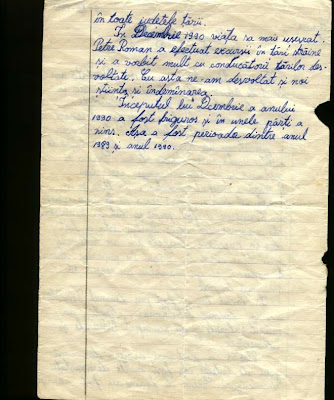 în toate județele țării.
În Decembrie 1990 viața sa mai ușurat.
Petre Roman a efectuat excursii în țări străine
și a vorbit mult cu conducătorii țărilor dez-
voltate. Cu asta ne-am dezvoltat și noi
știința și îndemînarea.
Începutul lui Decembrie a anului
1990 a fost friguros și în unele părți a
nins. Așa a fost perioada dintre anul
1989 și anul 1990.